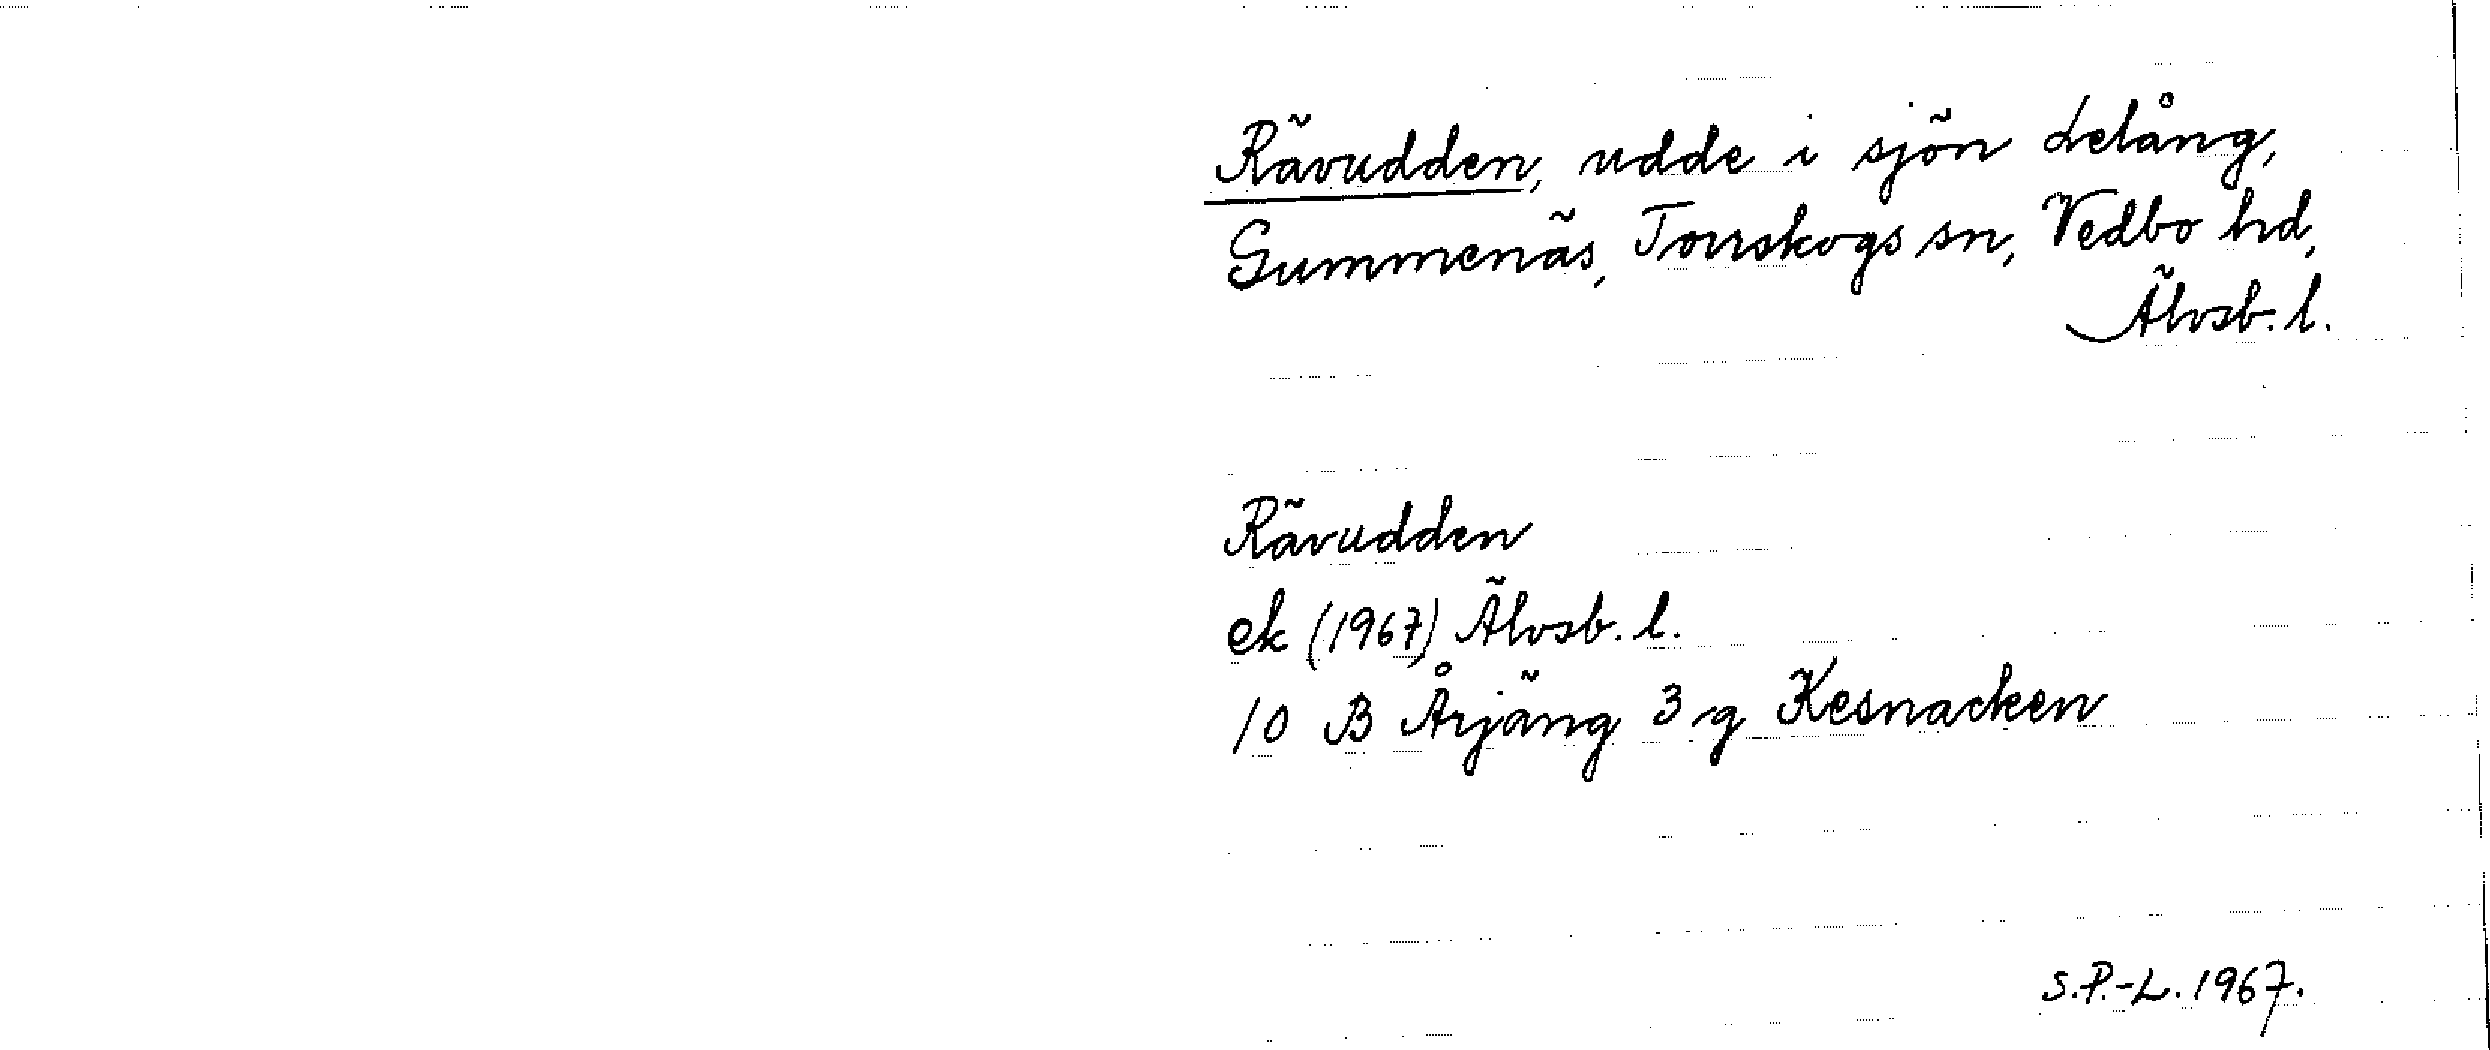 Rävudden, udde i sjön Lelång,
Gummenäs, Torrskogs sn, Vedbo hd,
Älvsb. l.
Rävudden
ek (1967) Älvsb. l.
10 B Årjäng 3 g Kesnacken
S.P.-L. 1967.